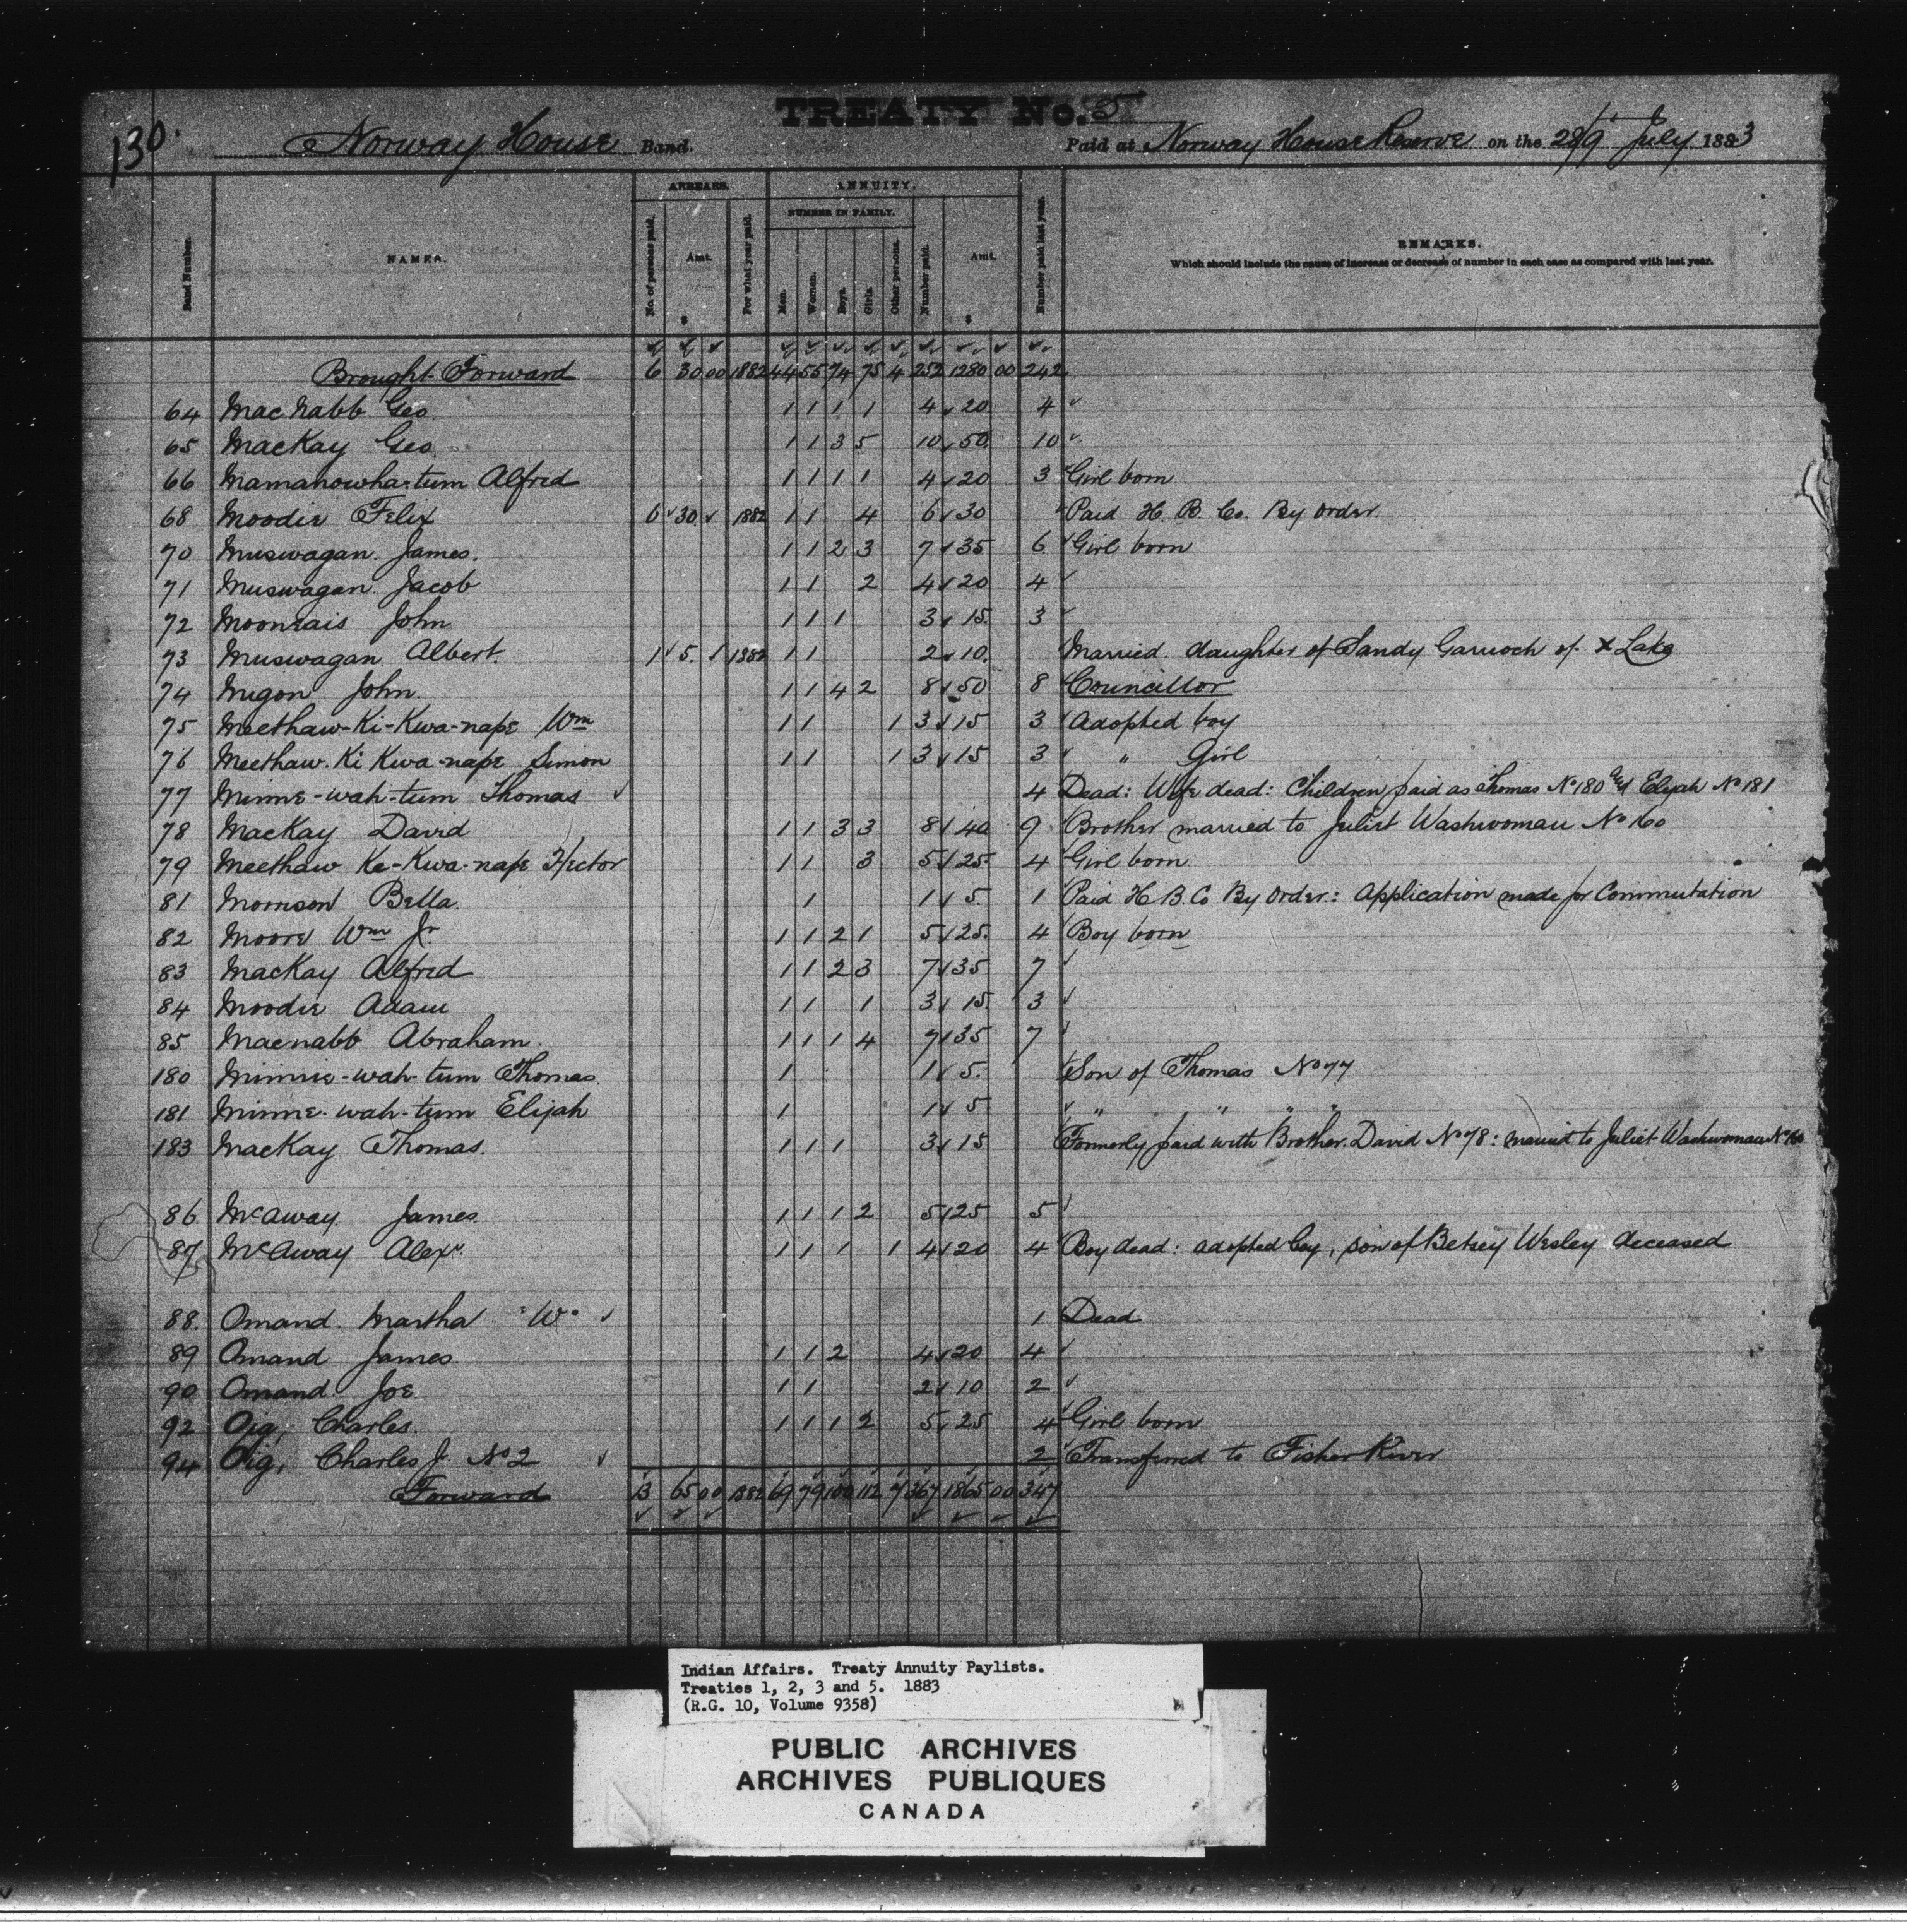 130.
TREATY No. 5
Norway House Band. Paid at Norway House Reserve on the 28/9 July 1883
ARREARS. ANNUITY.
NUMBER IN FAMILY.
Band Number. NAMES. No. of persons paid. Amt. $ For what year paid. Men. Women. Boys. Girls. Other persons. Number paid. Amt. $ Number paid last year. REMARKS.
Which should include the cause of increase or decrease of number in each case as compared with last year.
Brought Forward 6 30 00 1882 44 55 74 75 4 252 1280 00 242
64 MacNabb Geo 1 1 1 1 4 20 4
65 MacKay Geo 1 1 3 5 10 50 10
66 Mamanowha-tum Alfred 1 1 1 1 4 20 3 Girl born
68 Moodie Felix 6 30 1882 1 1 4 6 30 Paid H. B. Co. By order.
70 Muswagan James. 1 1 2 3 7 35 6 Girl born
71 Muswagan Jacob 1 1 2 4 20 4
72 Moonrais John 1 1 1 3 15. 3
73 Muswagan Albert. 1 5. 1882 1 1 2 10. Married daughter of Sandy Garrioch of X Lake
74 Mugon John. 1 1 4 2 8 50 8 Councillor
75 Meethaw-Ki-Kwa-nape Wm 1 1 1 3 15 3 Adopted boy
76 Meethaw. Ki Kwa-nape Simon 1 1 1 3 15 3 " Girl
77 Minne-wah-tum Thomas 4 Dead: Wife dead: Children paid as Thomas No 180 & Elijah No 181
78 MacKay David 1 1 3 3 8 40 9 Brother married to Juliet Washwoman No 160
79 Meethaw Ke-Kwa-nape Hector 1 1 3 5 25. 4 Girl born.
81 Morrison Bella. 1 1 5. 1 Paid H B. Co By Order.: Application made for Commutation
82 Moore Wm Jr 1 1 2 1 5 25. 4 Boy born
83 MacKay Alfred 1 1 2 3 7 35 7
84 Moodie Adam 1 1 1 3 15. 3
85 Macnabb Abraham. 1 1 1 4 7 35 7
180 Minnie-wah-tum Thomas. 1 1 5. Son of Thomas No 77
181 Minne-wah-tum Elijah 1 1 5 " " " "
183 MacKay Thomas. 1 1 1 3 15 Formerly paid with Brother David No 78: married to Juliet Washwoman No 160
86 McAway James. 1 1 1 2 5 25 5
87 McAway Alexr. 1 1 1 1 4 20 4 Boy dead: adopted boy, son of Betsey Wesley deceased
88. Omand. Martha Wo 1 Dead
89 Omand James. 1 1 2 4 20 4
90 Omand Joe 1 1 2 10 2
92 Oig, Charles. 1 1 1 2 5 25 4 Girl born
94 Oig, Charles J. No 2 2 Transferred to Fisher River
Forward 13 65 00 1882 69 79 100 112 7 367 1865 00 347
Indian Affairs. Treaty Annuity Paylists.
Treaties 1, 2, 3 and 5. 1883
(R.G. 10, Volume 9358)
PUBLIC ARCHIVES
ARCHIVES PUBLIQUES
CANADA